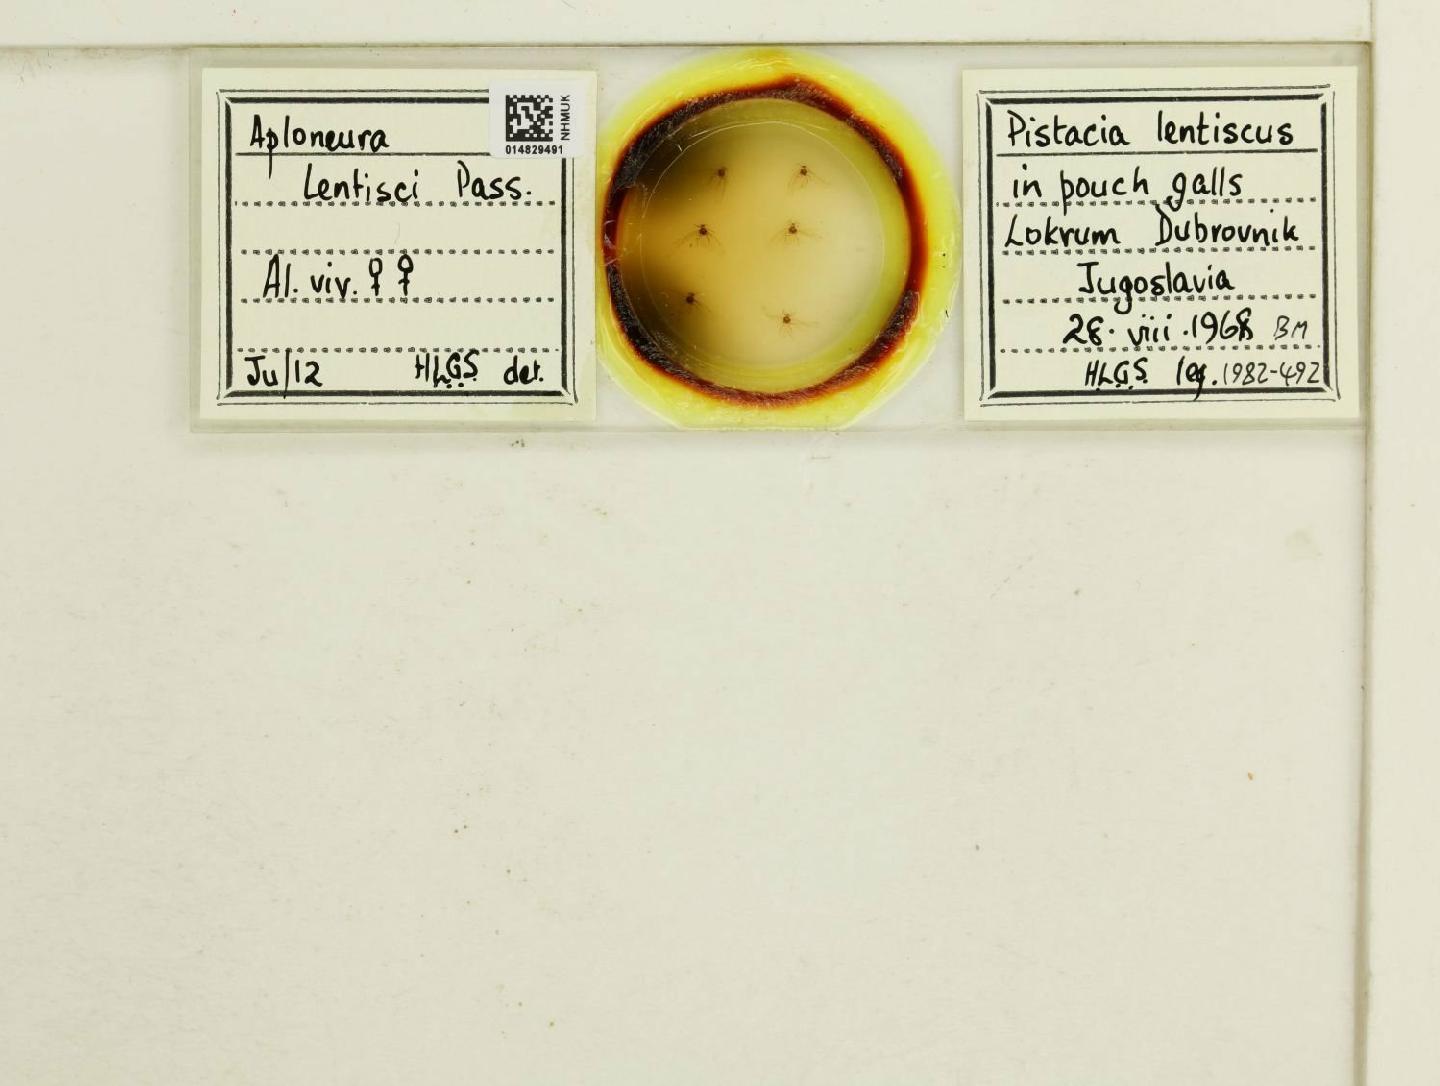 Aploneura
Lentisci Pass.
Al. viv. ♀ ♀
Ju/12 HLGS det.
NHMUK
014829491
Pistacia lentiscus
in pouch galls
Lokrum Dubrovnik
Jugoslavia
28. viii. 1968 BM
HLGS leg. 1982-492